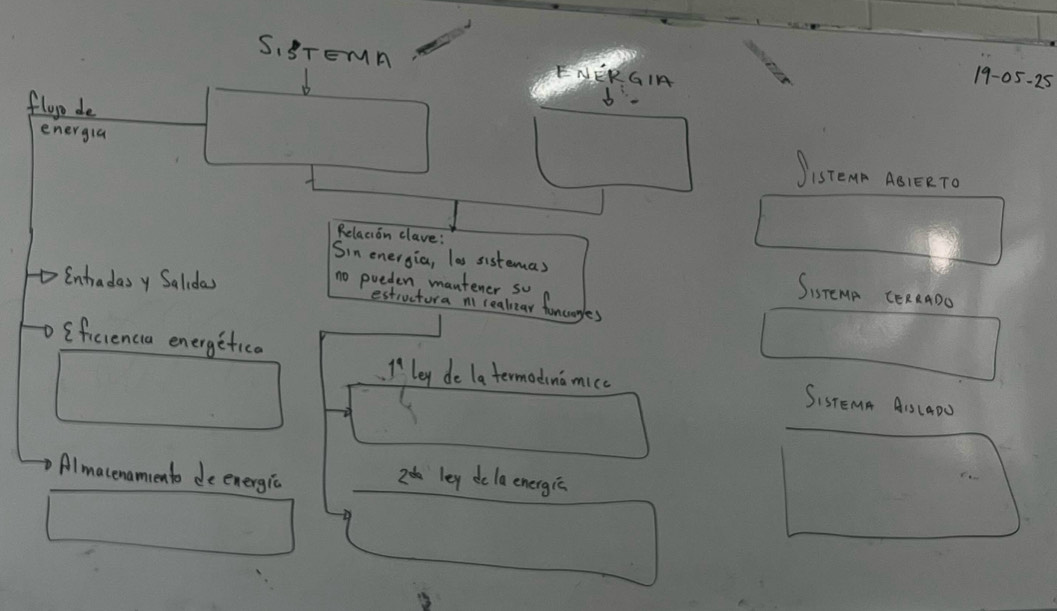 SISTEMA
ENERGIA
19-05-25
flujo de
energia
SISTEMA ABIERTO
Relación clave:
Sin energía, los sistemas
no pueden mantener su
estructura ni realizar funciones
Entradas y Salidas
SISTEMA CERRADO
Eficiencia energética
1ª Ley de la termodinámica
SISTEMA AISLADO
Almacenamiento de energía
2da ley de la energía